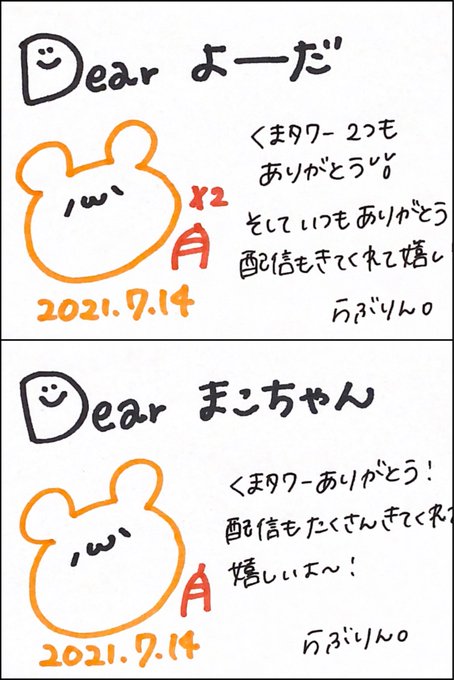 Dear よーだ
くまタワー 2つも
ありがとう!!
×2
そして いつも ありがとう
配信もきてくれて嬉し
2021.7.14
らぶりん。
Dear まこちゃん
くまタワーありがとう!
配信もたくさんきてくれて
嬉しいよ〜!
2021.7.14
らぶりん。